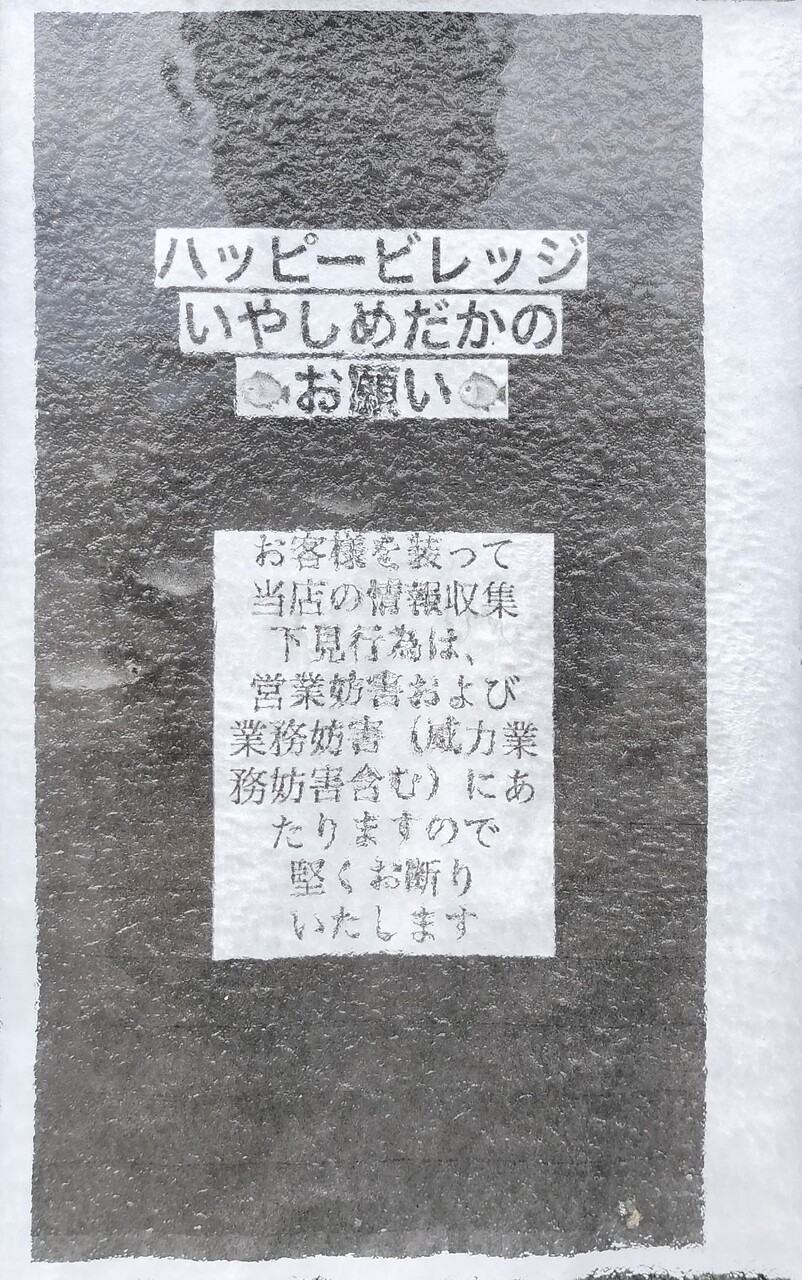 ハッピービレッジ
いやしめだかの
🐟お願い🐟
お客様を装って
当店の情報収集
下見行為は、
営業妨害および
業務妨害（威力業
務妨害含む）にあ
たりますので
堅くお断り
いたします